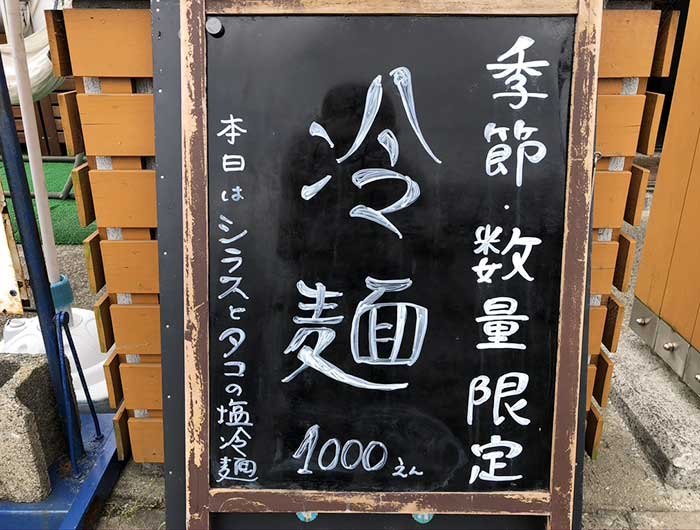 季節・数量限定
冷麺
1000えん
本日はシラスとタコの塩冷麺